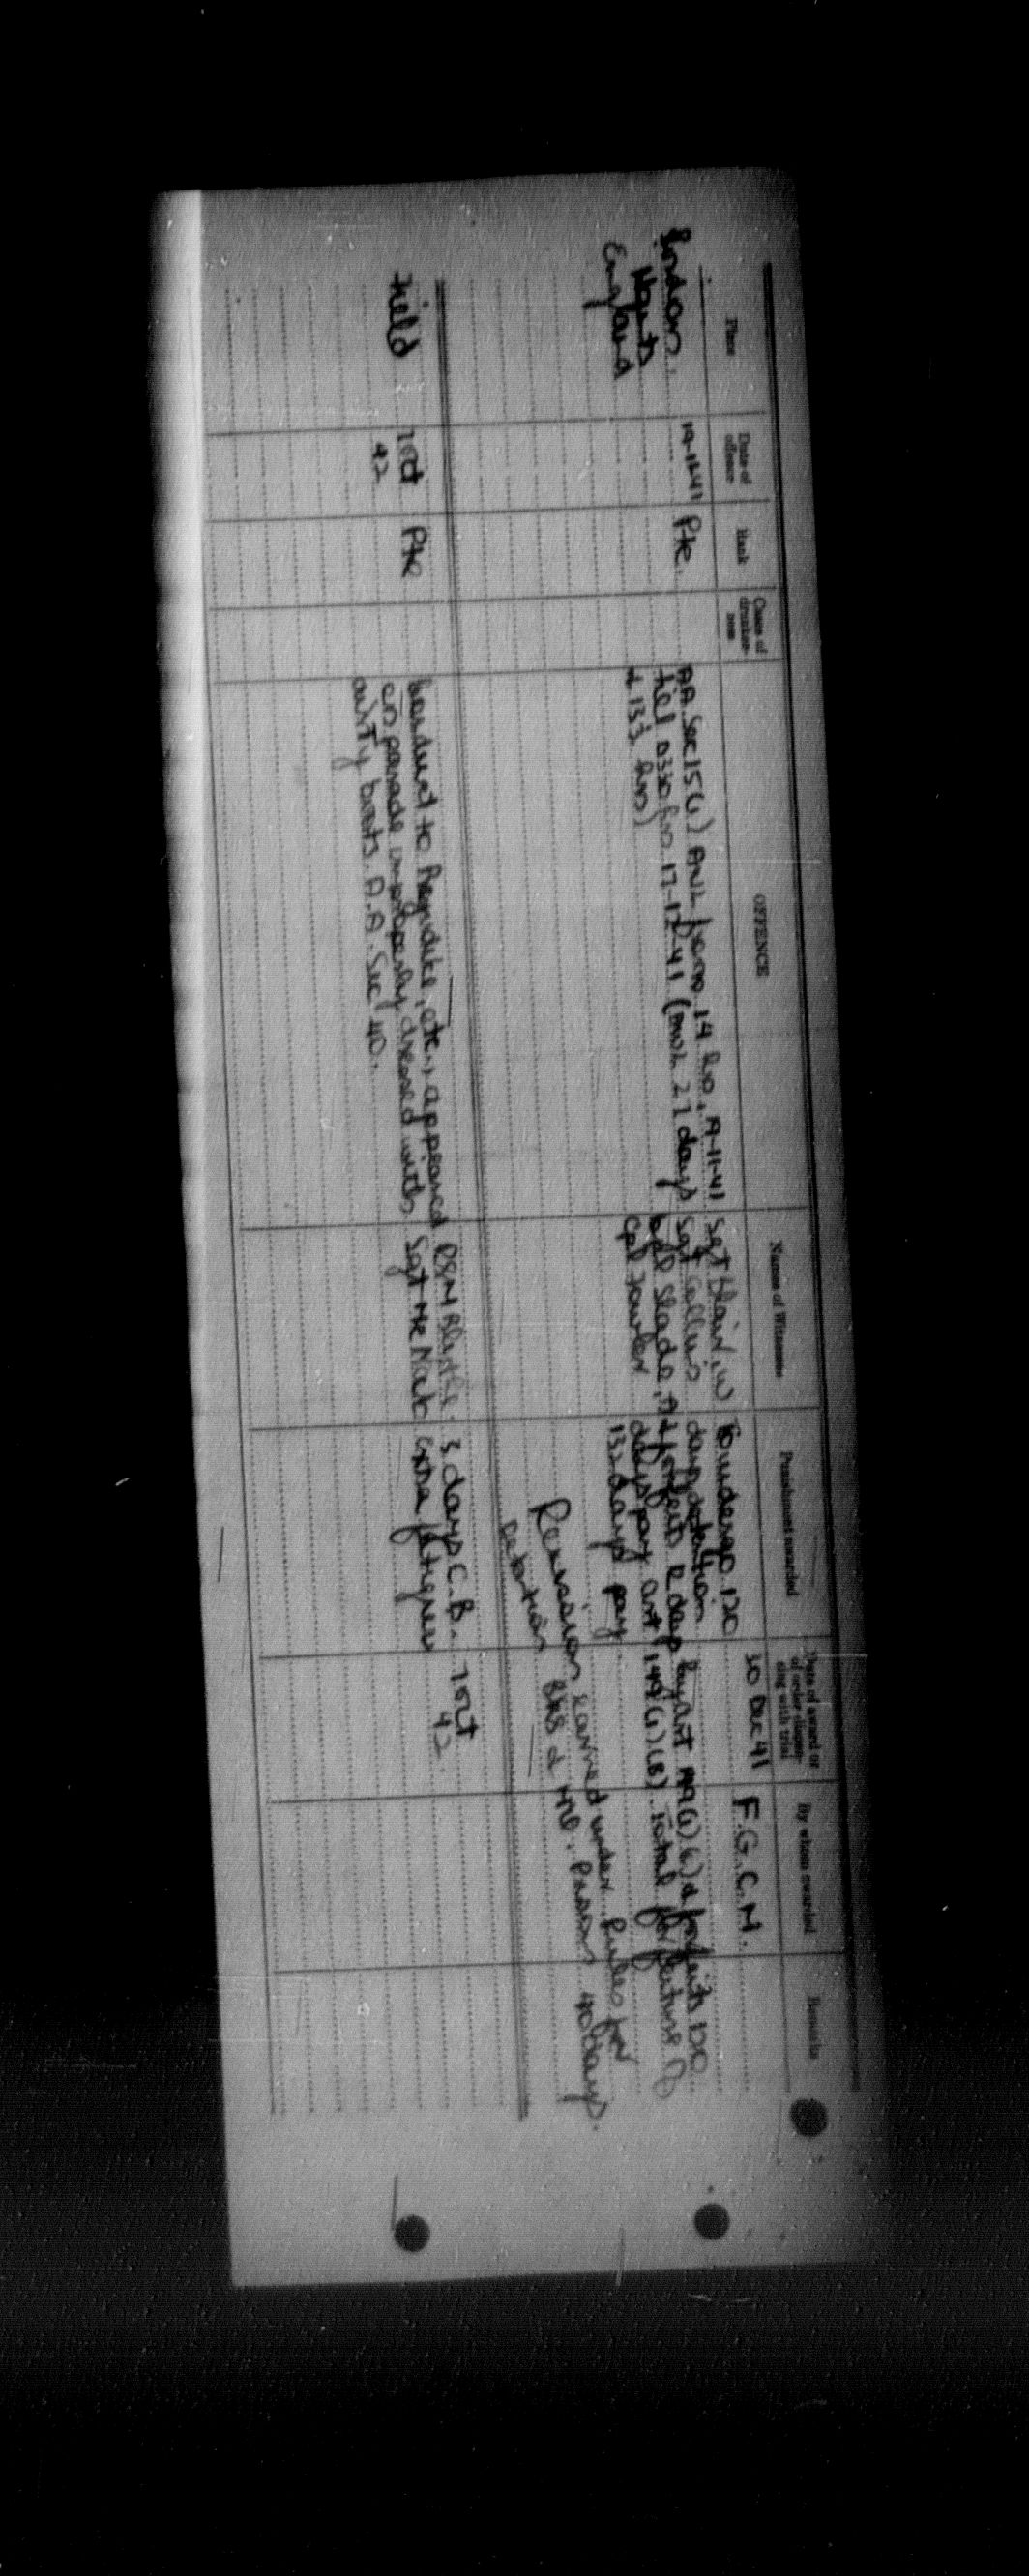 Place Date of offence Rank Cases of drunkenness OFFENCE Names of Witnesses Punishment awarded Date of award or of order dispensing with trial By whom awarded Remarks
Pte. AA. Sec 15(1) AWL from 14 hrs, 19-11-41 Sgt Blair, W To undergo 120 30 Dec 41 F.G.C.M.
Hants till 0330 hrs 17-12-41 (AWL 27 days Sgt days detention
England & 13½ hrs) Slade, A & forfeits days pay art 199(1)(b) & forfeits 120
Cpl Fowler days pay art 149(1)(B). Total forfeiture of
132 days pay
Remission earned under Rules for
Detention 40 days.
Field 7 Oct Pte Conduct to Prejudice, etc., appeared RSM 3 days C.B. 7 Oct
42 on parade improperly dressed with Sgt extra fatigues 42
dirty boots. A.A. Sec 40.